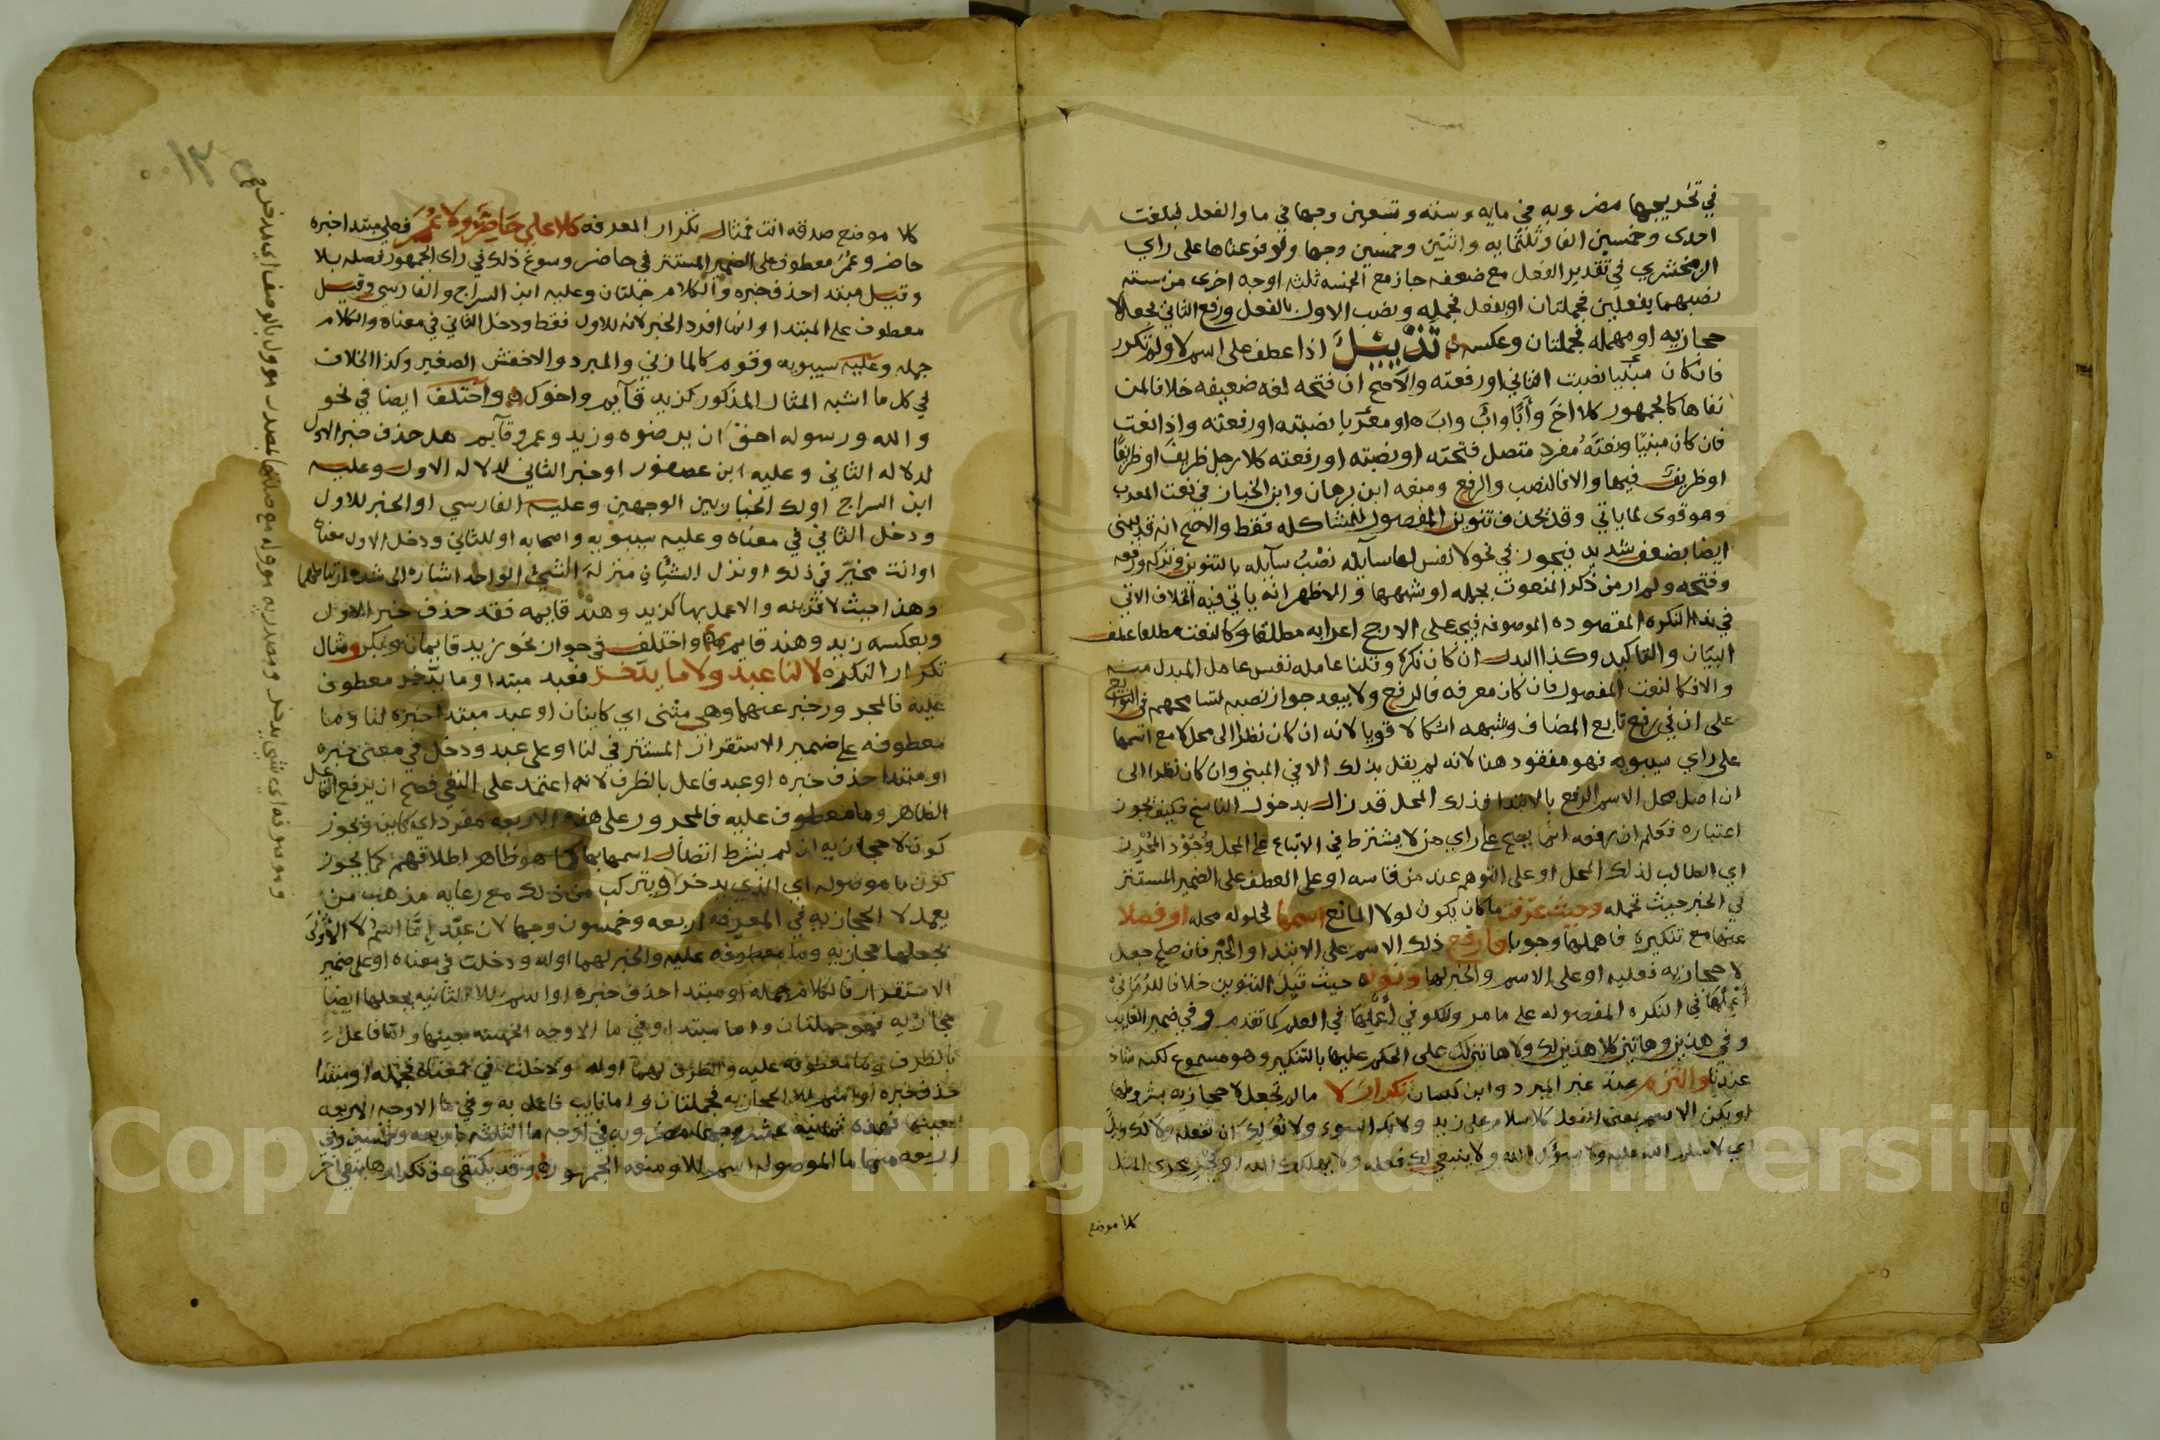 في تخريجها مضروبه في مايه وسته وتسعين وجها في ما والفعل فبلغت
احدى وخمسين الفا وثلثمايه واثنتين وخمسين وجها ولو فرعناها على راي
الزمخشري في تقدير الفعل مع ضعفه جاز مع الخمسه ثلثه اوجه اخرى من سته
نصبهما بفعلين فجملتان او بفعل فجمله ونصب الاول بالفعل ورفع الثاني بجعل لا
حجازيه او مهمله فجملتان وعكسه تذييل اذا عطف على اسم لا ولم تكرر
فان كان مبنيا نصبت الثاني او رفعته والاصح ان فتحه لغه ضعيفه خلافا لمن
نفاها كالجمهور كلا اخ وأبًا وابٌ وابَ او معربا نصبته او رفعته واذا نعت
فان كان مبنيا ونعته مفرد متصل فتحته او نصبته او رفعته كلا رجل ظريف او ظريفًا
او ظريفٌ فيها والا فالنصب والرفع ومنعه ابن برهان وابن الخباز في نعت المعرب
وهو قوى لما ياتي وقد يحذف تنوين المفصول للمشاكله فقط والاصح انه قد يبنى
ايضا بضعف شديد فيجوز في نحو لا نفس لها سايله نصب سايله بالتنوين وتركه ورفعه
وفتحه ولم ار من ذكر المنعوت بجمله او شبهها والاظهر انه ياتي فيه الخلاف الاتي
في ندا النكره المقصوده الموصوفه فيجي على الارجح اعرابه مطلقا وكالنعت مطلقا عطف
البيان والتاكيد وكذا البدل ان كان نكره وقلنا عامله نفس عامل المبدل منه
والا فكالنعت المفصول فان كان معرفه فالرفع ولا يبعد جواز نصبه لتسامحهم في التوابع
على ان في رفع تابع المضاف وشبهه اشكالا قويا لانه ان كان نظرا الى محل لا مع اسمها
على راي سيبويه فهو مفقود هنا لانه لم يقل بذلك الا في المبني وان كان نظرا الى
ان اصل محل الاسم الرفع بالابتدا فذلك المحل قد زال بدخول الناسخ فكيف يجوز
اعتباره فعلم ان رفعه انما يصح على راي من لا يشترط في الاتباع على المحل وجود المحرز
اي الطالب لذلك المحل او على التوهم عند من قاسه او على العطف على الضمير المستتر
في الخبر حيث تحمله وحيث عرفت ما كان يكون لولا المانع اسمها لحلوله محله او فصلا
عنها مع تنكيره فاهملها وجوبا وارفع ذلك الاسم على الابتدا والخبر فان صلح جعل
لا حجازيه فعليه او على الاسم والخبر لها ونونه حيث قبل التنوين خلافا للرماني
اعملها في النكره المفصوله على ما مر وللكوفي اعملها في العلم كما تقدم وفي ضمير الغايب
وفي هذين وهاتين كلا هذين لك ولا هاتين لك على الحكم عليها بالتنكير وهو مسموع لكنه شاذ
عندنا والتزم عند غير المبرد وابن كيسان تكرار لا ما لم تجعل لا حجازيه بشروطها
او يكن الاسم بمعنى الفعل كلا سلام على زيد ولا بك السوء ولا نولك ان تفعله ولا لك ويل
اي لا سلم الله عليه ولا سؤك الله ولا ينبغي لك فعله ولا يهلكك الله او يجر مجرى المثل
كلا موضع
كلا موضع صدقه انت فمثال تكرار المعرفه كلا علي حاضر ولا عمر فعلي مبتدا خبره
حاضر وعمر معطوف على الضمير المستتر في حاضر وسوغ ذلك في راي الجمهور فصله بلا
وقيل مبتدا حذف خبره والكلام جملتان وعليه ابن السراج والفارسي وقيل
معطوف على المبتدا وانما افرد الخبر لانه للاول فقط ودخل الثاني في معناه والكلام
جمله وعليه سيبويه وقوم كالمازني والمبرد والاخفش الصغير وكذا الخلاف
في كل ما اشبه المثال المذكور كزيد قايم واخوك واختلف ايضا في نحو
والله ورسوله احق ان يرضوه وزيد وعمرو قايم هل حذف خبر الاول
لدلاله الثاني وعليه ابن عصفور او خبر الثاني لدلاله الاول وعليه
ابن السراج اولك الخيار بين الوجهين وعليه الفارسي او الخبر للاول
ودخل الثاني في معناه وعليه سيبويه واصحابه او للثاني ودخل الاول معناه
او انت مخير في ذلك او نزل الشيئان منزله الشيء الواحد اشاره الى شده ارتباطهما
وهذا حيث لا قرينه والا عمل بها كزيد وهند قايمه فقد حذف خبر الاول
وبعكسه زيد وهند قايم واختلف في جواز نحو زيد قايمان وبكر ومثال
تكرار النكره لا لنا عبد ولا ما يدخر فعبد مبتدا وما يدخر معطوف
عليه فالمجرور خبر عنهما وهي مثنى اي كاينان او عبد مبتدا خبره لنا وما
معطوفه على ضمير الاستقرار المستتر في لنا او على عبد ودخل في معنى خبره
او مبتدا حذف خبره او عبد فاعل بالظرف لانه اعتمد على النفي فصح ان يرفع الفاعل
الظاهر وما معطوف عليه فالمجرور على هذه الاربعه مفرد اي كاين ويجوز
كون لا حجازيه ان لم يشترط اتصال اسمها بها كما هو ظاهر اطلاقهم كما يجوز
كون ما موصوله اي الذي يدخر ويتركب من ذلك مع رعايه مذهب من
يعمل لا الحجازيه في المعرفه اربعه وخمسون وجها لان عبد اما اسم لا الاولى
بجعلها حجازيه وما معطوفه عليه والخبر لهما اوله ودخلت في معناه او على ضمير
الاستقرار فالكلام جمله او مبتدا حذف خبره او اسم للا الثانيه بجعلها ايضا
حجازيه فهو جملتان واما مبتدا وفي ما الاوجه الخمسه جينها واما فاعل
بالظرف وما معطوفه عليه والظرف لهما اوله ودخلت في معناه فجمله او مبتدا
حذف خبره او اسم للا الحجازيه فجملتان واما نايب فاعل به وفي ما الاوجه الاربعه
بعينها فهذه ثمانيه عشر وجها مضروبه في اوجه ما الثلثه باربعه وخمسين وفي
اربعه منها ما الموصوله اسم للا ومنعه الجمهور وقد يكتفى عن تكرارها بنفي اخر